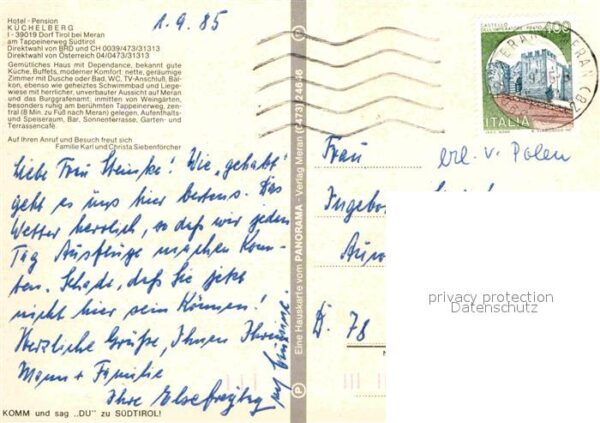 1.9.85
Hotel - Pension
KÜCHELBERG
I - 39019 Dorf Tirol bei Meran
am Tappeinerweg Südtirol
Direktwahl von BRD und CH 0039/473/31313
Direktwahl von Österreich 04/0473/31313
Gemütliches Haus mit Dependance, bekannt gute
Küche, Buffets, moderner Komfort: nette, geräumige
Zimmer mit Dusche oder Bad, WC, TV-Anschluß, Bal-
kon, ebenso wie geheiztes Schwimmbad und Liege-
wiese mit herrlicher, unverbauter Aussicht auf Meran
und das Burggrafenamt; inmitten von Weingärten,
besonders ruhig am berühmten Tappeinerweg, zen-
tral (8 Min. zu Fuß nach Meran) gelegen. Aufenthalts-
und Speiseraum, Bar, Sonnenterrasse, Garten- und
Terrassencafé.
Auf Ihren Anruf und Besuch freut sich
Familie Karl und Christa Siebenförcher
Liebe Frau Steinke! Wie „gehabt"
geht es uns hier bestens. Das
Wetter herrlich, so daß wir jeden
Tag Ausflüge machen konn-
ten. Schade, daß Sie jetzt
nicht hier sein können!
Herzliche Grüße, Ihnen Ihrem
Mann + Familie
Ihre Else
KOMM und sag „DU" zu SÜDTIROL!
Eine Hauskarte vom PANORAMA - Verlag Meran (0473) 24646
CASTELLO
400
ITALIA
MERAN
Frau
erl. v. Polen
D. 78
privacy protection
Datenschutz